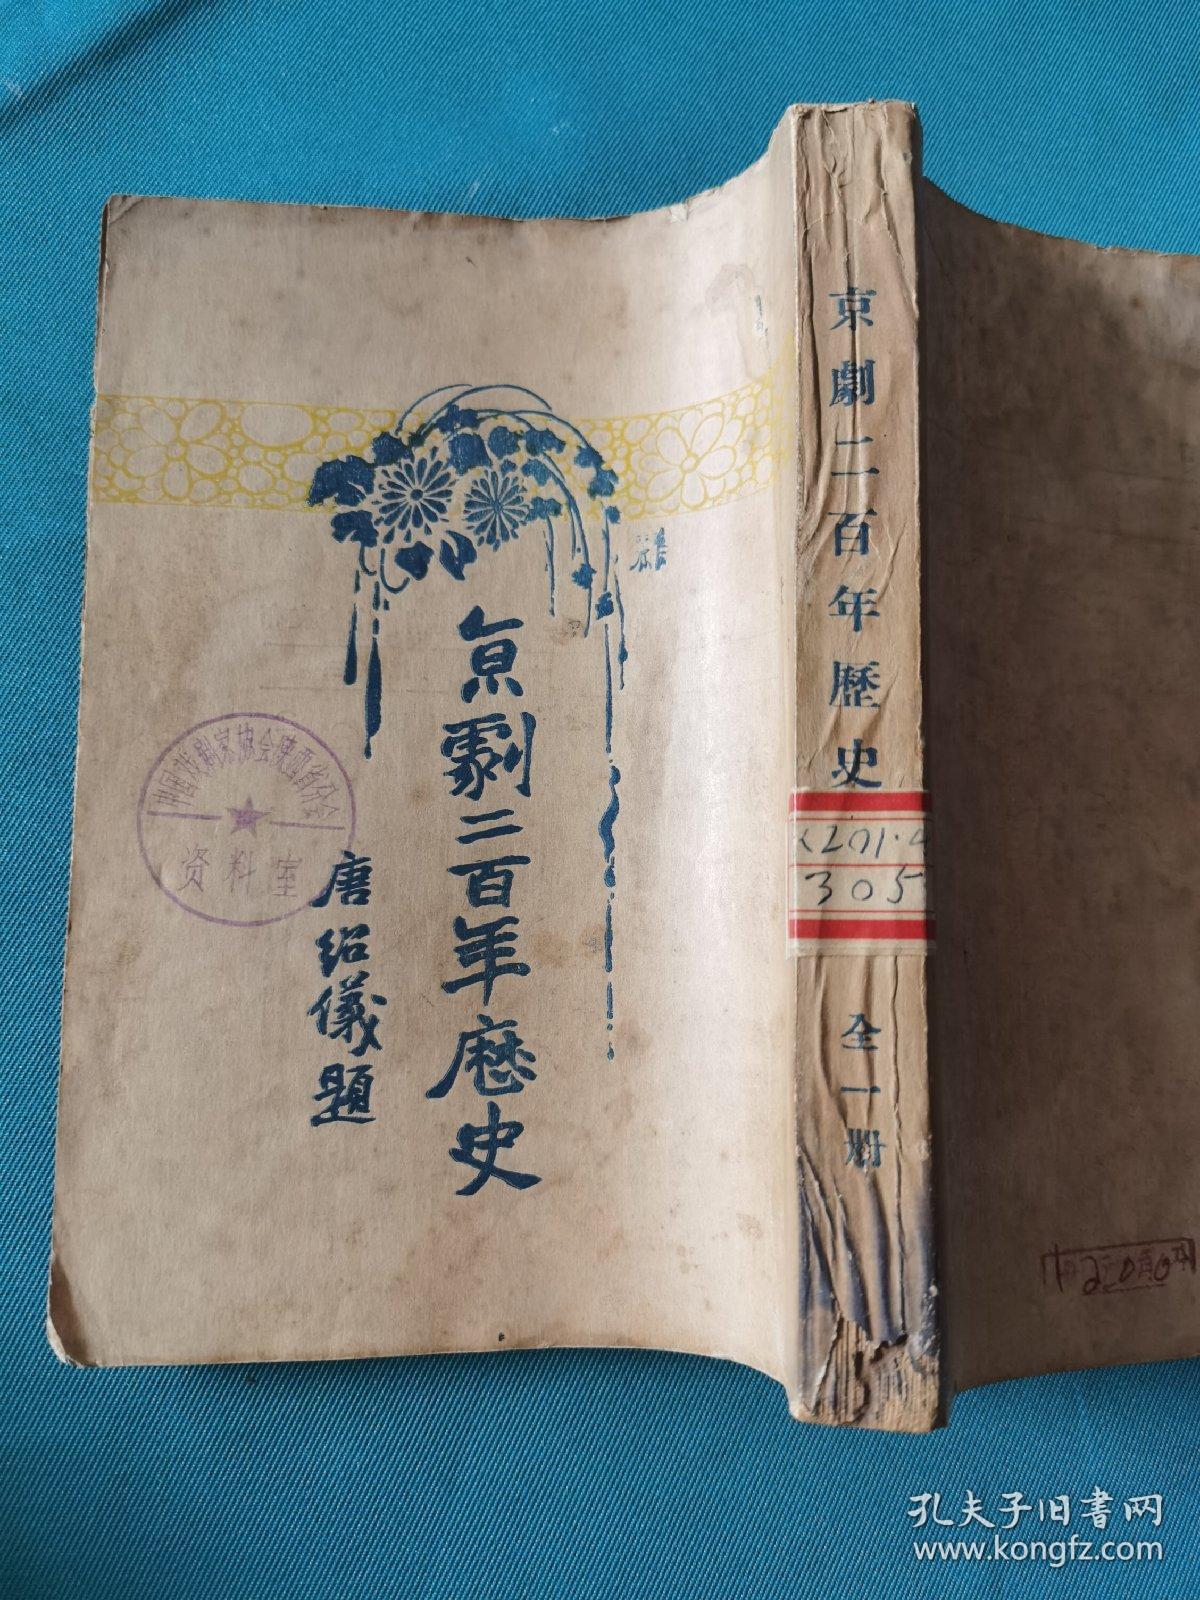 京劇二百年歷史
唐紹儀題
中国戏剧家协会陕西省分会
资料室
京劇二百年歷史
201·4
305
全一册
孔夫子旧書网
www.kongfz.com